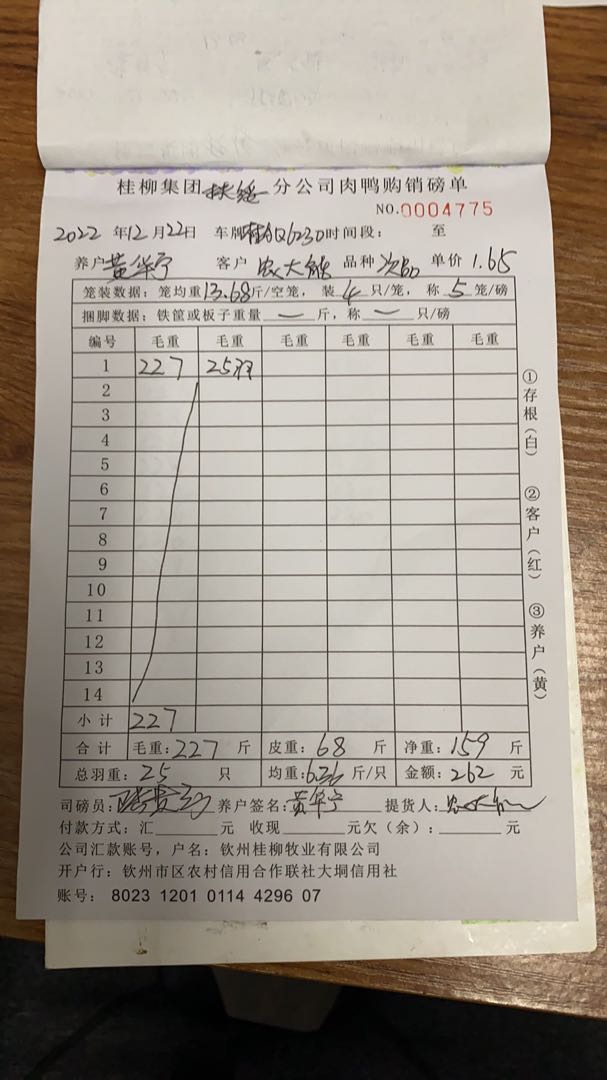 桂柳集团扶绥分公司肉鸭购销磅单
NO.0004775
2022年12月22日 车牌桂AQ6230时间段: 至
养户黄华宁 客户农大能 品种次品 单价1.65
笼装数据:笼均重13.68斤/空笼,装4只/笼,称5笼/磅
捆脚数据:铁筐或板子重量—斤,称—只/磅
编号 毛重 毛重 毛重 毛重 毛重 毛重
1 227 25羽
2
3
4
5
6
7
8
9
10
11
12
13
14
小计 227
合计 毛重:227斤 皮重:68斤 净重:159斤
总羽重:25只 均重:6.36斤/只 金额:262元
司磅员: 养户签名:黄华宁 提货人:农大能
付款方式:汇______元 收现______元欠(余):______元
公司汇款账号,户名:钦州桂柳牧业有限公司
开户行:钦州市区农村信用合作联社大垌信用社
账号: 8023 1201 0114 4296 07
①存根(白) ②客户(红) ③养户(黄)